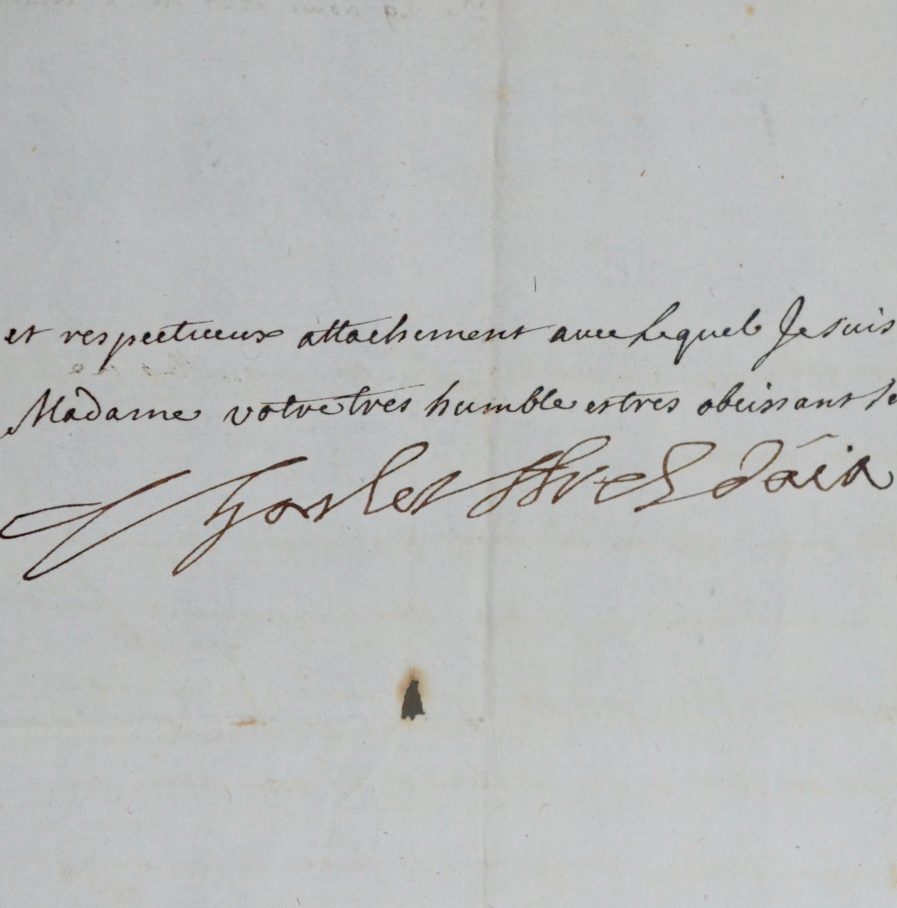 et respectueux attachement avec Lequel Je suis
Madame votre tres humble et tres obeissant se
Charles